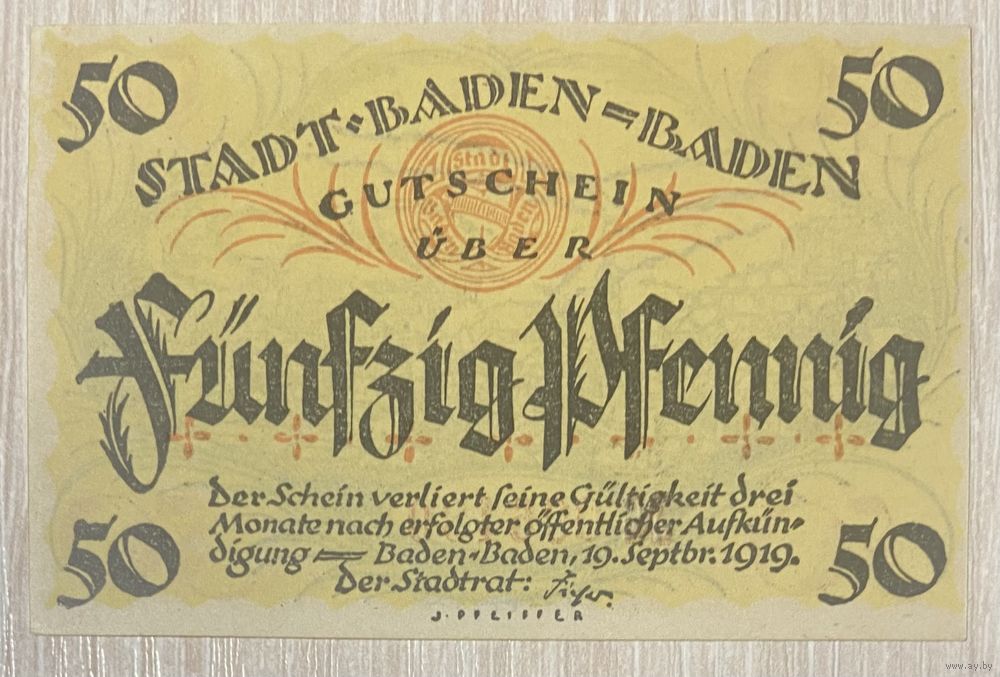 50 50
STADT·BADEN=BADEN
GUTSCHEIN
ÜBER
stadt
Fünfzig Pfennig
Der Schein verliert seine Gültigkeit drei
Monate nach erfolgter öffentlicher Aufkün=
digung = Baden-Baden, 19. Septbr. 1919.
Der Stadtrat:
50 50
J. PFEIFFER
www.ay.by